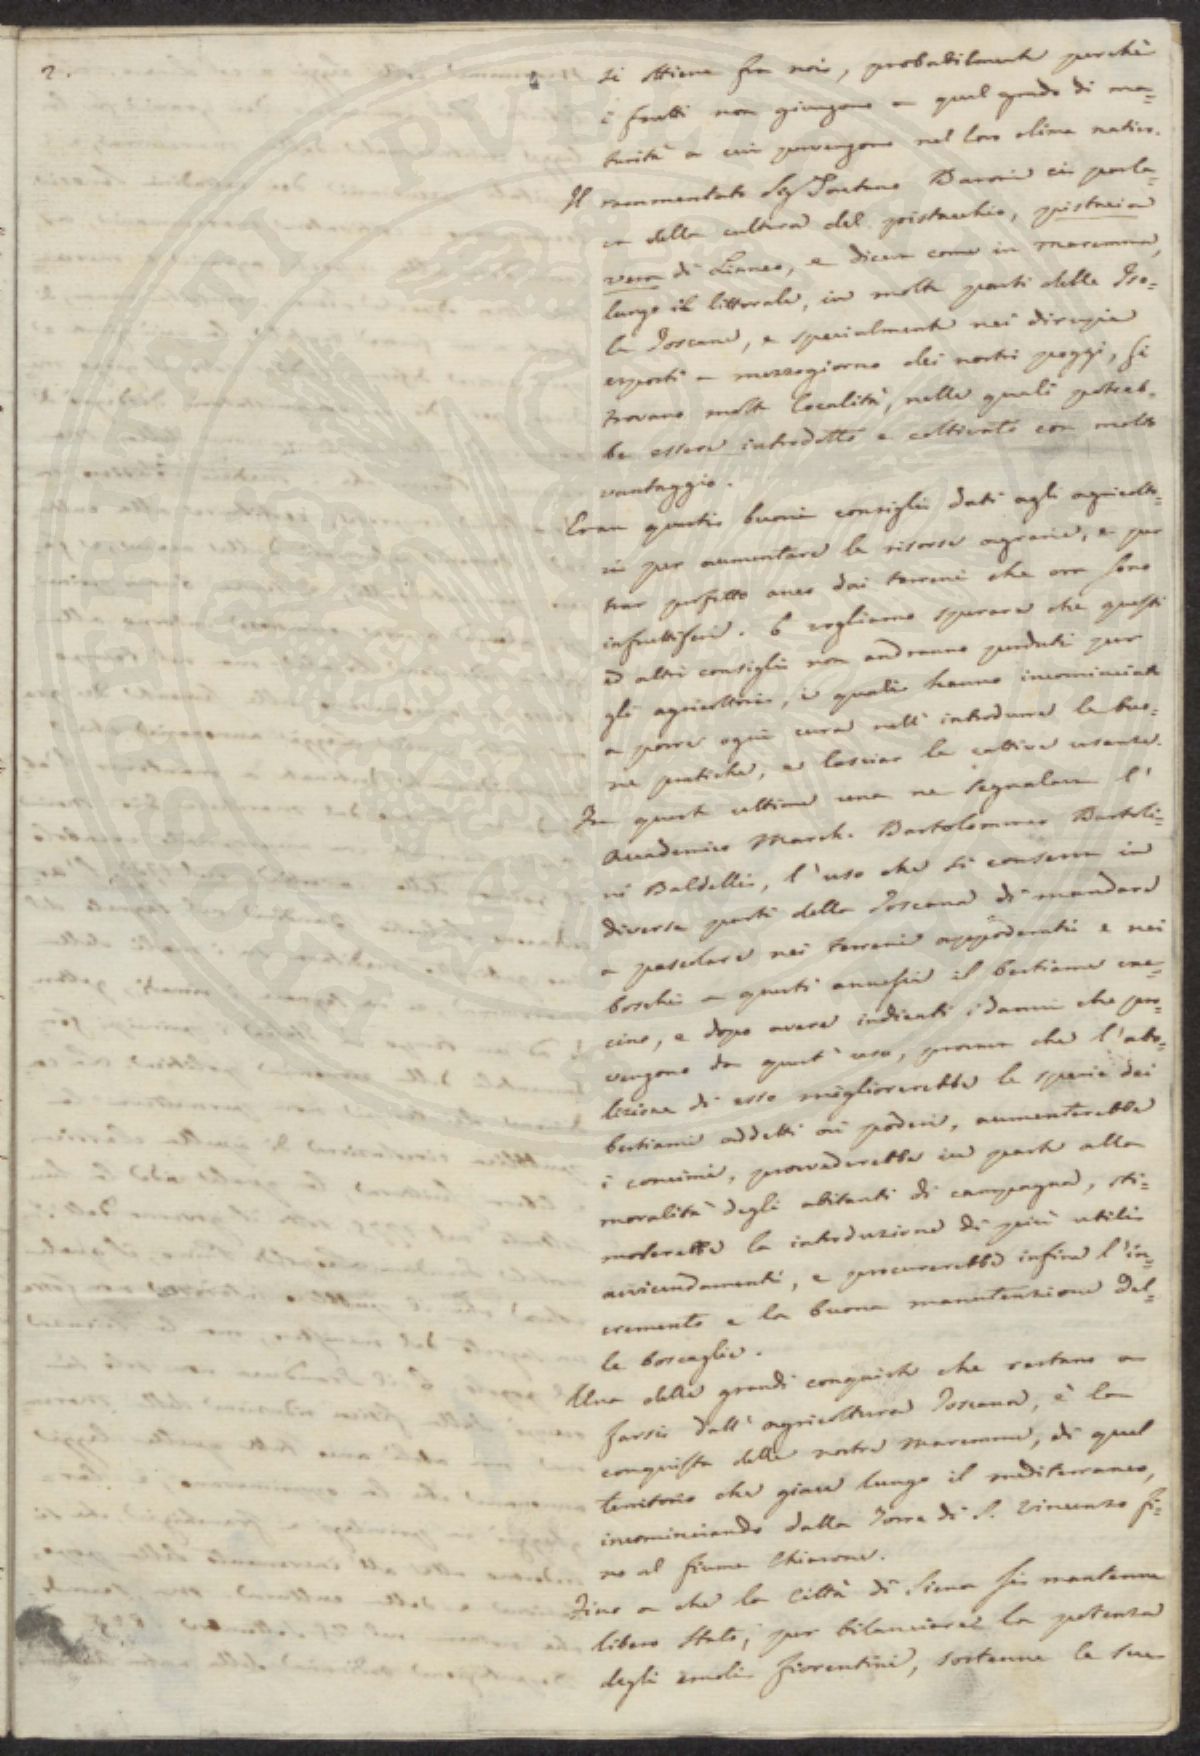 2.
si ottiene fra noi, probabilmente perchè
i frutti non giungono a quel grado di ma=
turità a cui pervengono nel loro clima nativo.
Il rammentato Sig. Gaetano Baroni ci parla=
va della cultura del pistacchio, pistacia
vera di Linneo, e diceva come in maremma,
lungo il littorale, in molte parti delle Iso=
le Toscane, e specialmente nei dirupi
esposti a mezzogiorno dei nostri poggi, si
trovano molte località, nelle quali potreb=
be essere introdotto e coltivato con molto
vantaggio.
Eran questi buoni consigli dati agli agricolto=
ri per aumentare le risorse agrarie, e per
trar profitto anco dai terreni che ora sono
infruttiferi. E vogliamo sperare che questi
ed altri consigli non andranno perduti per
gli agricoltori, i quali hanno incominciato
a porre ogni cura nell' introdurre le buo=
ne pratiche, e lasciar le cattive usanze.
Fra queste ultime una ne segnalava l'
Accademico March. Bartolommeo Bartoli=
ni Baldelli, l'uso che si conserva in
diverse parti della Toscana di mandare
a pascolare nei terreni appoderati e nei
boschi a questi annessi il bestiame vac=
cino, e dopo avere indicati i danni che pro=
vengono da quest' uso, provava che l'abo=
lizione di esso migliorerebbe le specie dei
bestiami addetti ai poderi, aumenterebbe
i concimi, provvederebbe in parte alla
moralità degli abitanti di campagna, sti=
molerebbe la introduzione di più utili
avvicendamenti, e procurerebbe infine l'in=
cremento e la buona manutenzione del=
le boscaglie.
Una delle grandi conquiste che restano a
farsi dall' agricoltura Toscana, è la
conquista delle nostre maremme, di quel
territorio che giace lungo il mediterraneo,
incominciando dalla Torre di S. Vincenzo fi=
no al fiume Chiarone.
Fino a che la Città di Siena si mantenne
libero Stato, per bilanciare la potenza
degli emoli fiorentini, sostenne le sue